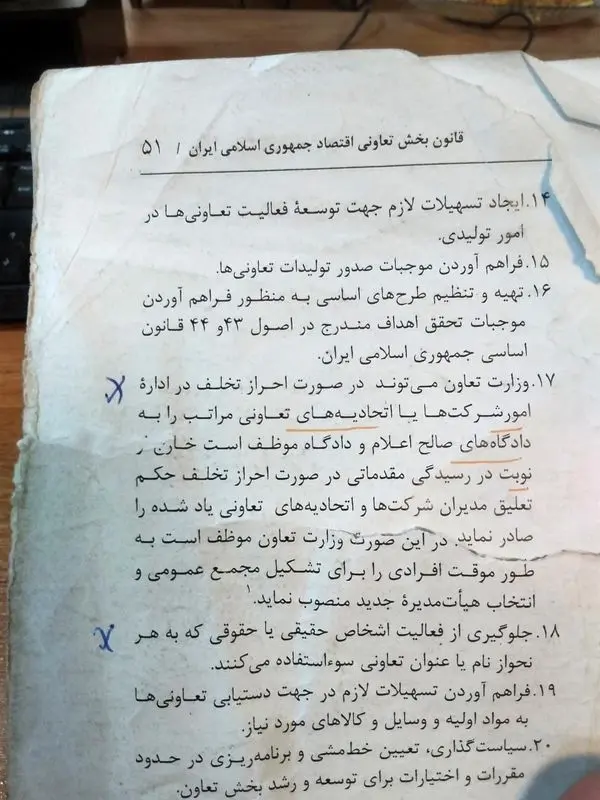 قانون بخش تعاونی اقتصاد جمهوری اسلامی ایران / ۵۱
۱۴.ایجاد تسهیلات لازم جهت توسعهٔ فعالیت تعاونی‌ها در
امور تولیدی.
۱۵.فراهم آوردن موجبات صدور تولیدات تعاونی‌ها.
۱۶.تهیه و تنظیم طرح‌های اساسی به منظور فراهم آوردن
موجبات تحقق اهداف مندرج در اصول ۴۳و ۴۴ قانون
اساسی جمهوری اسلامی ایران.
۱۷.وزارت تعاون می‌تواند در صورت احراز تخلف در ادارهٔ
امورشرکت‌ها یا اتحادیه‌های تعاونی مراتب را به
دادگاه‌های صالح اعلام و دادگاه موظف است خارج از
نوبت در رسیدگی مقدماتی در صورت احراز تخلف حکم
تعلیق مدیران شرکت‌ها و اتحادیه‌های تعاونی یاد شده را
صادر نماید. در این صورت وزارت تعاون موظف است به
طور موقت افرادی را برای تشکیل مجمع عمومی و
انتخاب هیأت‌مدیرهٔ جدید منصوب نماید.۱
۱۸.جلوگیری از فعالیت اشخاص حقیقی یا حقوقی که به هر
نحواز نام یا عنوان تعاونی سوءاستفاده می‌کنند.
۱۹.فراهم آوردن تسهیلات لازم در جهت دستیابی تعاونی‌ها
به مواد اولیه و وسایل و کالاهای مورد نیاز.
۲۰.سیاست‌گذاری، تعیین خط‌مشی و برنامه‌ریزی در حدود
مقررات و اختیارات برای توسعه و رشد بخش تعاون.